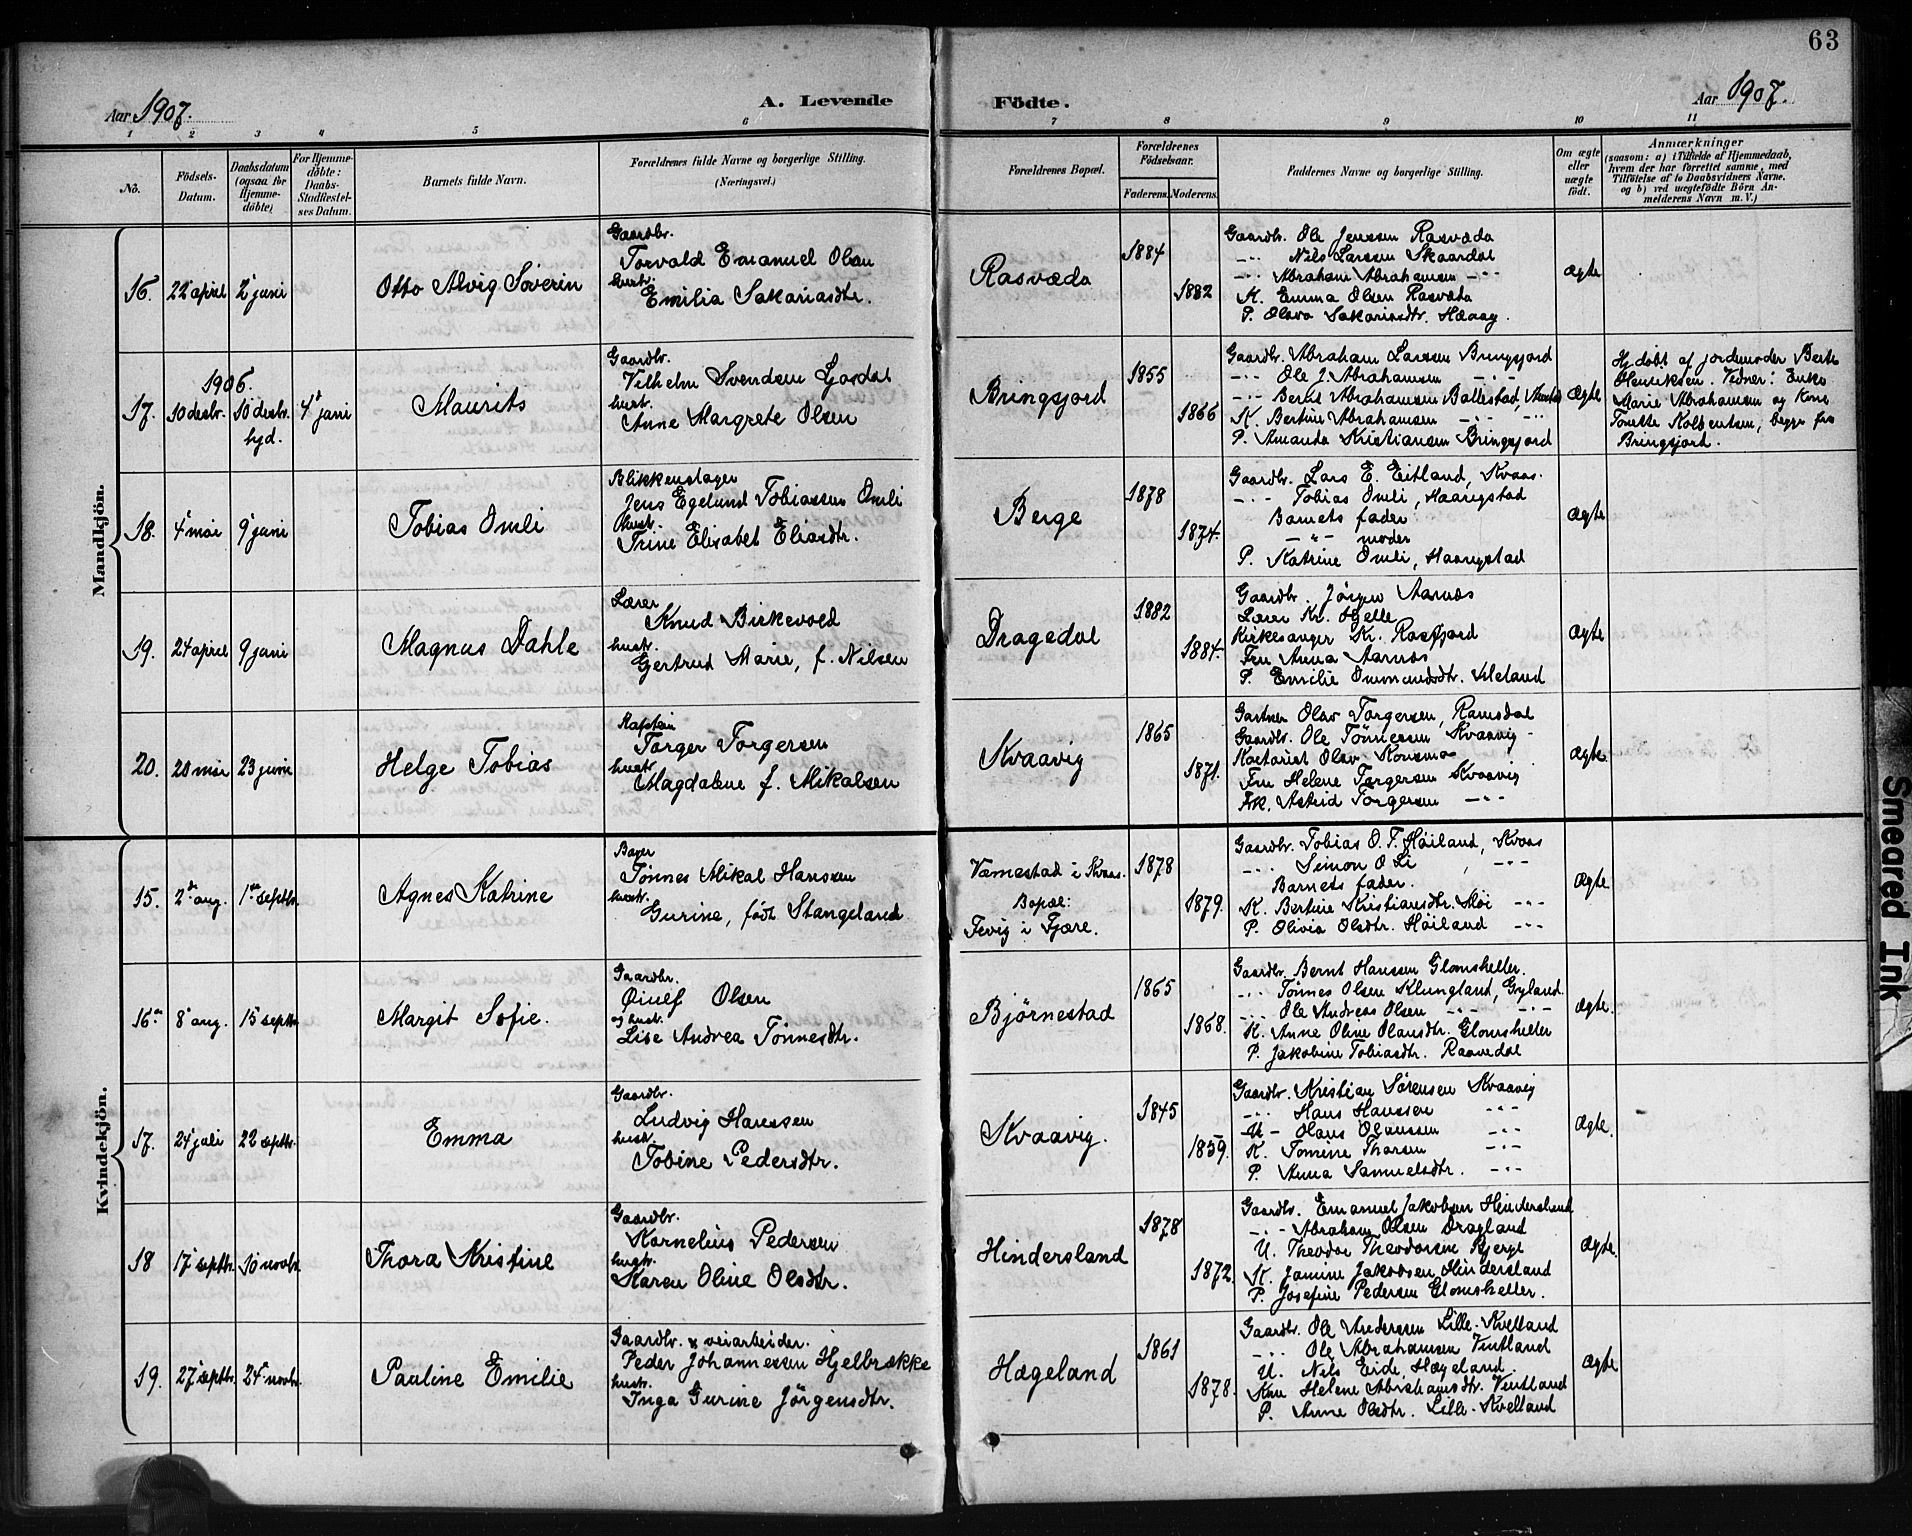 63
Aar 1907.
A. Levende
Födte.
Aar 1907.
1 2 3 4 5 6 7 8 9 10 11
No.
Födsels-
Datum.
Daabsdatum
(ogsaa for
Hjemme-
döbte)
For Hjemme-
döbte:
Daabs-
Stadfæstel-
ses Datum.
Barnets fulde Navn.
Forældrenes fulde Navne og borgerlige Stilling.
(Næringsvei.)
Forældrenes Bopæl.
Forældrenes
Födselsaar.
Faderens. Moderens.
Faddernes Navne og borgerlige Stilling.
Om ægte
eller
uægte
født.
Anmærkninger
(saasom: a) i Tilfælde af Hjemmedaab,
hvem der har forrettet samme, med
Tilföielse af to Daabsvidners Navne.
og b) ved uægtefödte Börn An-
melderens Navn m. V.)
Mandkjön.
16. 22 april 2 juni
Otto Alvig Severin
Gaardbr.
Torvald Emanuel Olsen
hustr.
Emilia Sakariasdtr.
Rasvæda
1884
1882
Gaardbr. Ole Jenssen Rasvæda
-"- Nils Larssen Skaardal
-"- Abraham Abrahamsen -"-
K. Emma Olsen Rasvæda
P. Olava Sakariasdtr. Haaag.
Ægte
17. 1906. 10 desbr. 10 desbr. hjd. 4 juni
Maurits
Gaardbr.
Vilhelm Svendsen Lyosdal
hustr.
Anne Margrete Olsen
Bringsjord
1855
1866
Gaardbr. Abraham Larssen Bringsjord
-"- Ole J. Abrahamsen -"-
-"- Bernt Abrahamsen Ballestad,
K. Bertine Abrahamsen -"- -"-
P. Amanda Kristiansen Bringsjord
Ægte
Hj.døbt af jordemoder Berte
Henriksen. Vidner: Enke
Marie Abrahamsen og Kone
Tonette Kolbentsen, begge fra
Bringsjord.
18. 4 mai 9 juni
Tobias Omli
Blikkenslager
Jens Egelund Tobiassen Omli
hustr.
Trine Elisabet Eliasdtr.
Berge
1878
1874.
Gaardbr. Lars E. Eitland, Kvaas.
-"- Tobias Omli, Haangstad
Barnets fader
-"- moder
P. Katrine Omli, Haangstad
Ægte
19. 24 april 9 juni
Magnus Dahle
Lærer
Knud Birkevold
hustr.
Gjertrud Marie, f. Nilsen
Dragedal
1882
1884.
Gaardbr. Jörgen Aarnæs
Lærer Kr. Hjelle
Kirkesanger Kr. Rosfjord
Fru Anna Aarnæs
P. Emilie Ommundsdtr. Veland
Ægte
20. 20 mai 23 juni
Helge Tobias
Kaptein
Torger Torgersen
hustr.
Magdalene f. Mikalsen
Kvaavig
1865
1871.
Gartner Olav Torgersen, Ramsdal
Gaardbr. Ole Tönnessen Kvaavig
Olav Konsmo
Fru Helene Torgersen Kvaavig
Frk. Astrid Torgersen -"-
Ægte.
Kvindekjön.
15. 2 aug. 1 septbr.
Agnes Katrine
Bager
Tönnes Mikal Hanssen
hustr.
Gurine, født Stangeland
Værnestad i Kvaas.
Bopæl:
Fevig i Fjære.
1878
1879.
Gaardbr. Tobias O. F. Höiland, Kvaas
-"- Simon O. Li -"-
Barnets fader.
K. Bertine Kristiansdtr. Moi -"-
P. Olivia Olsdtr. Höiland -"-
Ægte.
16 8 aug. 15 septbr.
Margit Sofie.
Gaardbr.
Öiulf Olsen
og hustr.
Lise Andrea Tönnesdtr.
Bjørnestad
1865
1868.
Gaardbr. Bernt Hanssen Glomsheller.
-"- Tönnes Olsen Klungland, Gryland
-"- Ole Andreas Olsen -"- -"-
K. Anne Oline Olausdtr. Glomsheller
P. Jakobine Tobiasdtr. Raavedal
Ægte.
17. 24 juli 22 septbr.
Emma
Gaardbr.
Ludvig Hanssen
hustr.
Tobine Pedersdtr.
Kvaavig.
1845
1859.
Gaardbr. Kristian Sörensen Kvaavig
-"- Hans Hanssen -"-
U- Olaus Olaussen -"-
K. Tomene Thorsen -"-
P. Anna Samuelsdtr. -"-
Ægte.
18 17 septbr. 10 novbr.
Thora Kristine
Gaardbr.
Kornelius Pedersen
hustr.
Karen Oline Olsdtr.
Hindersland
1878
1872.
Gaardbr. Emanuel Jakobsen Hindersland
-"- Abraham Olsen Dragland
U. Theodor Theodorsen Bjerge
K. Jamine Jakobsen Hindersland
P. Josefine Pedersen Glomsheller.
Ægte.
19. 27 septbr. 24 novbr.
Pauline Emilie
Gaardbr. & veiarbeider.
Peder Johannessen Hjelbrække
hustr.
Inga Gurine Jörgensdtr.
Hægeland
1861
1878.
Gaardbr. Ole Anderssen Lille-Kvelland
-"- Ole Abrahamsen Vintland
U. Nils Eide, Hægeland.
Kone Helene Abrahamsdtr. Vintland
P. Anne Olsdtr. Lille-Kvelland
Ægte
Smeared Ink